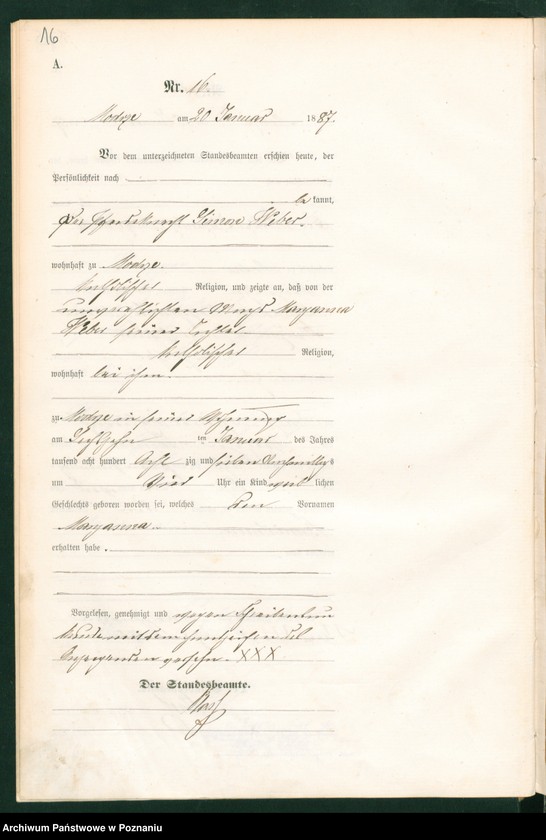 16
A.
Nr. 16.
Modze am 20 Januar 1887.
Vor dem unterzeichneten Standesbeamten erschien heute, der
Persönlichkeit nach
be kannt,
der Pferdeknecht Simon Weber.
wohnhaft zu Modze.
katholischer Religion, und zeigte an, daß von der
unverehelichten Maryanna
Weber seiner Tochter
katholischer Religion,
wohnhaft bei ihm.
zu Modze in seiner Wohnung
am Sechszehn ten Januar des Jahres
tausend acht hundert Acht zig und sieben Nachmittags
um Uhr ein Kind weib lichen
Geschlechts geboren worden sei, welches den Vornamen
Maryanna.
erhalten habe.
Vorgelesen, genehmigt und wegen Schreibensun
kunde mit dem Handzeichen des
versehen. XXX
Der Standesbeamte.
Archiwum Państwowe w Poznaniu